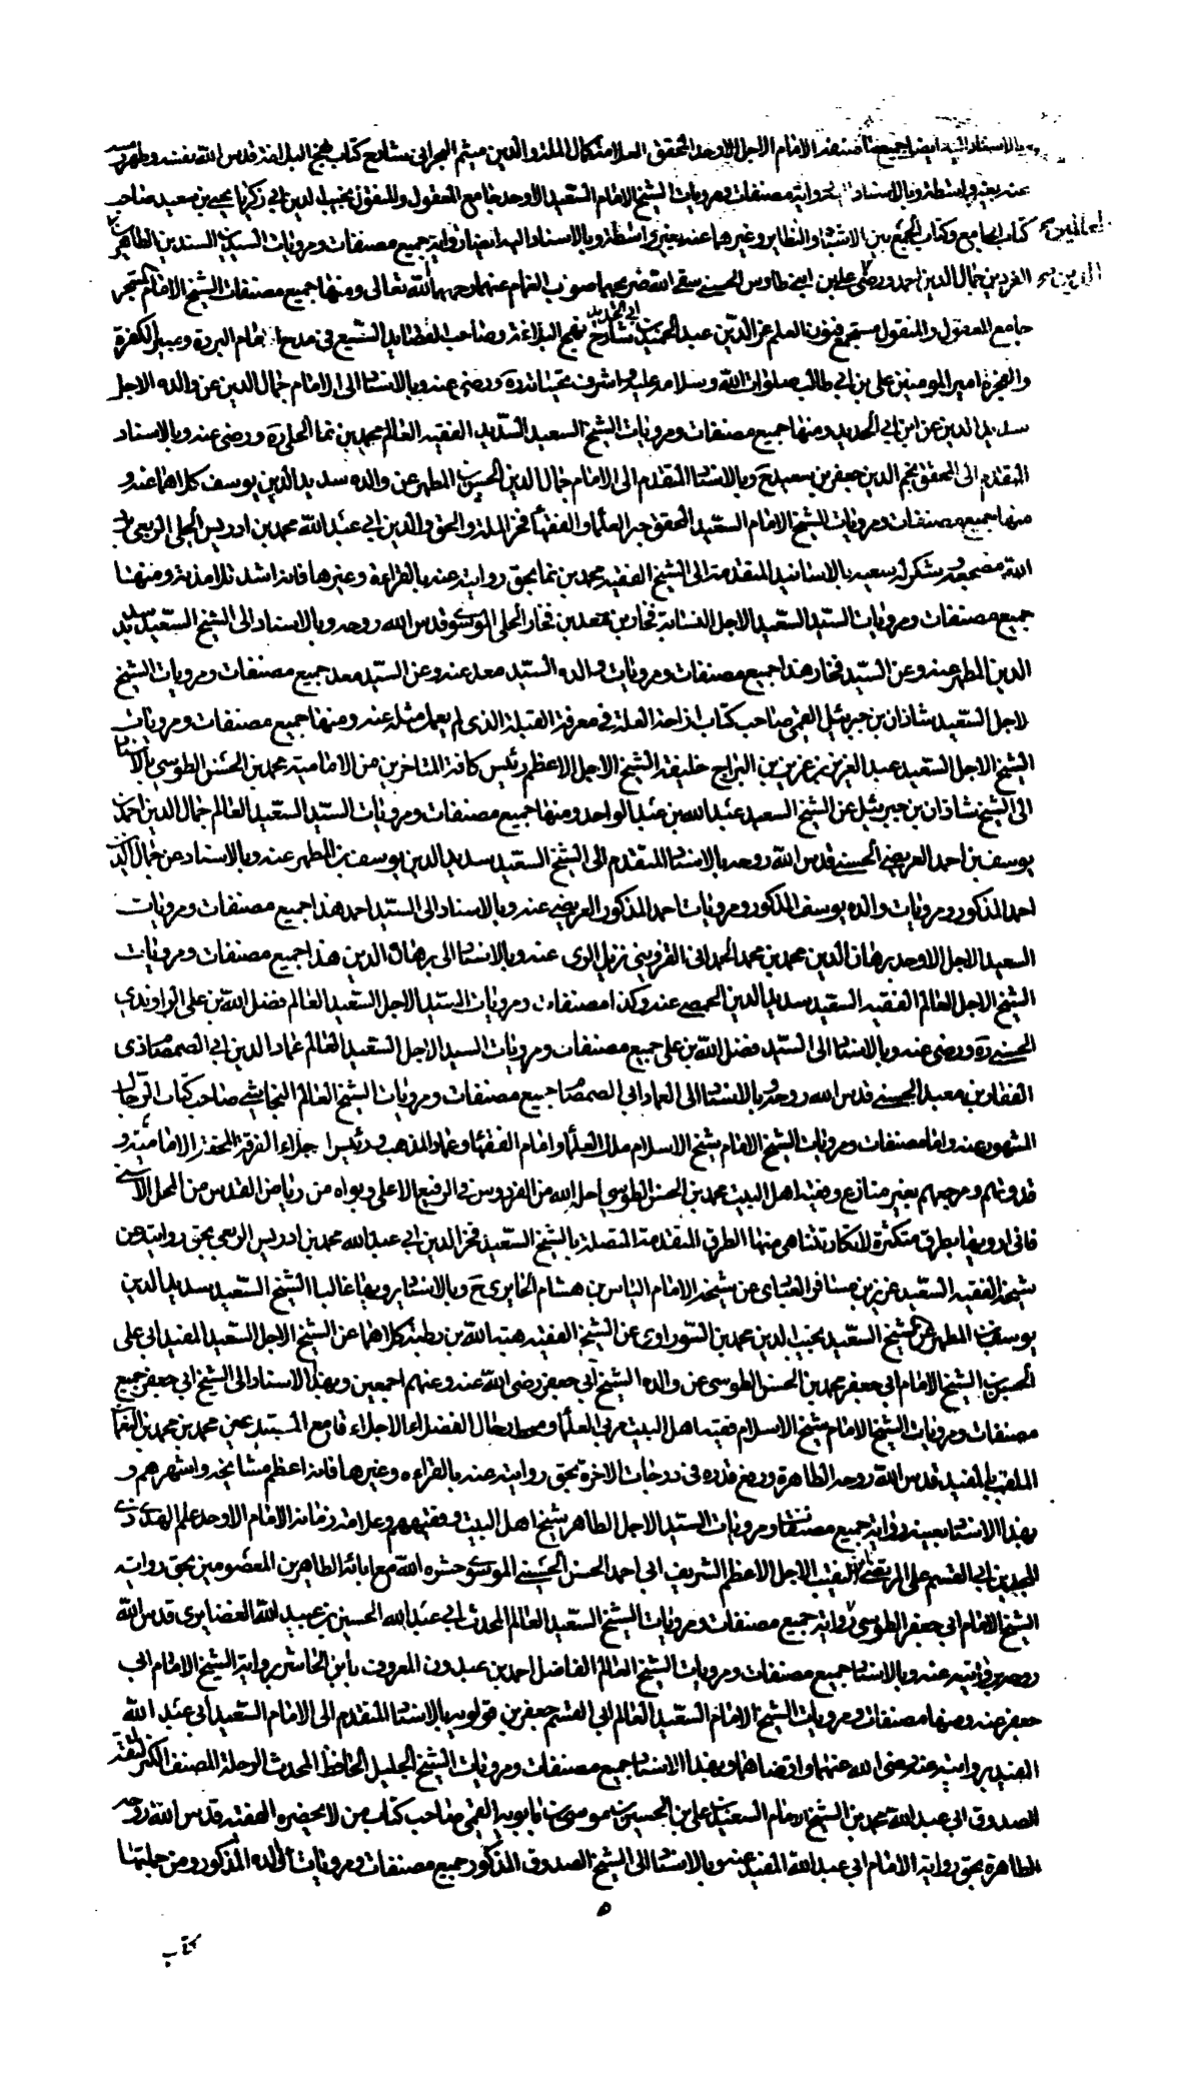 وبالاسناد اليه ايضا جميع ما صنفه الامام الاجل الاوحد المحقق العلامة كمال الملة والدين ميثم البحراني شارح كتاب نهج البلاغة قدس الله نفسه وطهر رمسه
عنه بغير واسطة وبالاسناد رواية مصنفات ومرويات الشيخ الامام السعيد الاوحد جامع المعقول والمنقول نجيب الدين ابي زكريا يحيى بن سعيد صاحب
كتاب الجامع وكتاب الجمع بين الاشباه والنظاير وغيرهما عنه بغير واسطة وبالاسناد اليه ايضا رواية جميع مصنفات ومرويات السيدين السندين الطاهرين
الفردين جمال الدين احمد ورضي علي بن ابني طاوس الحسني سقى الله ضريحهما صوب الغمام عنهما رحمهما الله تعالى ومنها جميع مصنفات الشيخ الامام المتبحر
جامع المعقول والمنقول مستجمع فنون العلم عز الدين عبد الحميد بن ابي الحديد شارح نهج البلاغة وصاحب القصايد السبع في مدح امام البررة ومبير الكفرة
والفجرة امير المؤمنين علي بن ابي طالب صلوات الله وسلامه عليه واشرف تحياته ره ورضي عنه وبالاسناد الى الامام جمال الدين عن والده الاجل
سديد الدين عن ابن ابي الحديد ومنها جميع مصنفات ومرويات الشيخ السعيد السديد الفقيه العالم محمد بن نما الحلي ره ورضي عنه وبالاسناد
المتقدم الى المحقق نجم الدين جعفر بن سعيد ح وبالاسناد المتقدم الى الامام جمال الدين الحسن بن المطهر عن والده سديد الدين يوسف كلاهما عنه و
منها جميع مصنفات ومرويات الشيخ الامام السعيد المحقق حبر العلماء والفقهاء فخر الملة والحق والدين ابي عبد الله محمد بن ادريس الحلي الربعي
الله مضجعه وشكر له سعيه بالاسانيد المتقدمة الى الشيخ الفقيه محمد بن نما بحق روايته عنه بالقراءة وغيرها فانه اشد تلامذته ومنها
جميع مصنفات ومرويات السيد السعيد الاجل النسابة فخار بن معد بن فخار الحلي الموسوي قدس الله روحه وبالاسناد الى الشيخ السعيد سديد
الدين المطهر عنه وعن السيد فخار هذا جميع مصنفات ومرويات والده السيد معد عنه وعن السيد معد جميع مصنفات ومرويات الشيخ
الاجل السعيد شاذان بن جبرئيل القمي صاحب كتاب ازاحة العلة في معرفة القبلة الذي لم يعمل مثله عنه ومنها جميع مصنفات ومرويات
الشيخ الاجل السعيد عبد العزيز عزيز بن البراج خليفة الشيخ الاجل الاعظم رئيس كافة المتاخرين من الامامية محمد بن الحسن الطوسي بالاسناد
الى الشيخ شاذان بن جبرئيل عن الشيخ السعيد عبد الله بن عبد الواحد ومنها جميع مصنفات ومرويات السيد السعيد العالم جمال الدين احمد بن
يوسف بن احمد العريضي الحسيني قدس الله روحه بالاسناد المتقدم الى الشيخ السعيد سديد الدين يوسف بن المطهر عنه وبالاسناد عن جمال الدين
احمد المذكور ومرويات والده يوسف المذكور ومرويات احمد المذكور العريضي عنه وبالاسناد الى السيد احمد هذا جميع مصنفات ومرويات
السعيد الاجل الاوحد برهان الدين محمد بن محمد الحمداني القزويني نزيل الري عنه وبالاسناد الى برهان الدين هذا جميع مصنفات ومرويات
الشيخ الاجل العالم الفقيه السعيد سديد الدين الحمصي عنه وكذا مصنفات ومرويات السيد الاجل السعيد العالم فضل الله بن علي الراوندي
الحسني ره ورضي عنه وبالاسناد الى السيد فضل الله بن علي جميع مصنفات ومرويات السيد الاجل السعيد العالم عماد الدين ابي الصمصام ذي
الفقار بن معبد الحسني قدس الله روحه وبالاسناد الى العماد ابي الصمصام جميع مصنفات ومرويات الشيخ العالم النجاشي صاحب كتاب الرجال
المشهور عنه واما مصنفات ومرويات الشيخ الامام شيخ الاسلام ملك العلماء وامام الفقهاء وعماد المذهب ورئيس اجلاء الفرقة المحقة الامامية و
قدوتهم ومرجعهم بغير منازع وفقيه اهل البيت محمد بن الحسن الطوسي احله الله من الفردوس في الرفيع الاعلى وبواه من رياض القدس من المحل الاسنى
فاني ارويها بطرق متكثرة لا تكاد تتناهى منها الطرق المتقدمة المتصلة بالشيخ السعيد فخر الدين ابي عبد الله محمد بن ادريس الربعي بحق روايته عن
شيخه الفقيه السعيد عربي بن مسافر العبادي عن شيخه الامام الياس بن هشام الحايري ح وبالاسناد يرويها غالبا الشيخ السعيد سديد الدين
يوسف بن المطهر عن الشيخ السعيد نجيب الدين محمد بن السوراوي عن الشيخ الفقيه هبة الله بن رطبة كلاهما عن الشيخ الاجل السعيد المفيد ابي علي
الحسن بن الشيخ الامام ابي جعفر محمد بن الحسن الطوسي عن والده الشيخ ابي جعفر رضي الله عنه وعنهم اجمعين وبهذا الاسناد الى الشيخ ابي جعفر جميع
مصنفات ومرويات الشيخ الامام شيخ الاسلام فقيه اهل البيت مربي العلماء ومحط رحال الفضلاء الاجلاء قامع المبتدعين محمد بن محمد بن النعمان
الملقب بالمفيد قدس الله روحه الطاهرة ورفع قدره في درجات الاخرة بحق روايته عنه بالقراءة وغيرها فانه اعظم مشايخه واشهرهم و
بهذا الاسناد بعينه رواية جميع مصنفات ومرويات السيد الاجل الطاهر شيخ اهل البيت وفقيههم وعلامة زمانه الامام الاوحد علم الهدى ذي
المجدين ابي القسم علي المرتضى بن النقيب الاجل الاعظم الشريف ابي احمد الحسن الحسيني الموسوي حشره الله مع ابائه الطاهرين المعصومين بحق رواية
الشيخ الامام ابي جعفر الطوسي رواية جميع مصنفات ومرويات الشيخ السعيد العالم المحدث ابي عبد الله الحسين بن عبيد الله الغضايري قدس الله
روحه بروايته عنه وبالاسناد جميع مصنفات ومرويات الشيخ العالم الفاضل احمد بن عبدون المعروف بابن الحاشر برواية الشيخ الامام ابي
جعفر عنه ومنها مصنفات ومرويات الشيخ الامام السعيد العالم ابي القسم جعفر بن قولويه بالاسناد المتقدم الى الامام السعيد ابي عبد الله
المفيد بروايته عنه رضي الله عنهما وارضاهما وبهذا الاسناد جميع مصنفات ومرويات الشيخ الجليل الحافظ المحدث الرحلة المصنف الكبير الثقة
الصدوق ابي عبد الله محمد بن الشيخ الامام السعيد علي بن الحسين بن موسى بن بابويه القمي صاحب كتاب من لا يحضره الفقيه قدس الله روحه
الطاهرة بحق رواية الامام ابي عبد الله المفيد عنه وبالاسناد الى الشيخ الصدوق المذكور جميع مصنفات ومرويات والده المذكور ومن جملتها
كتاب